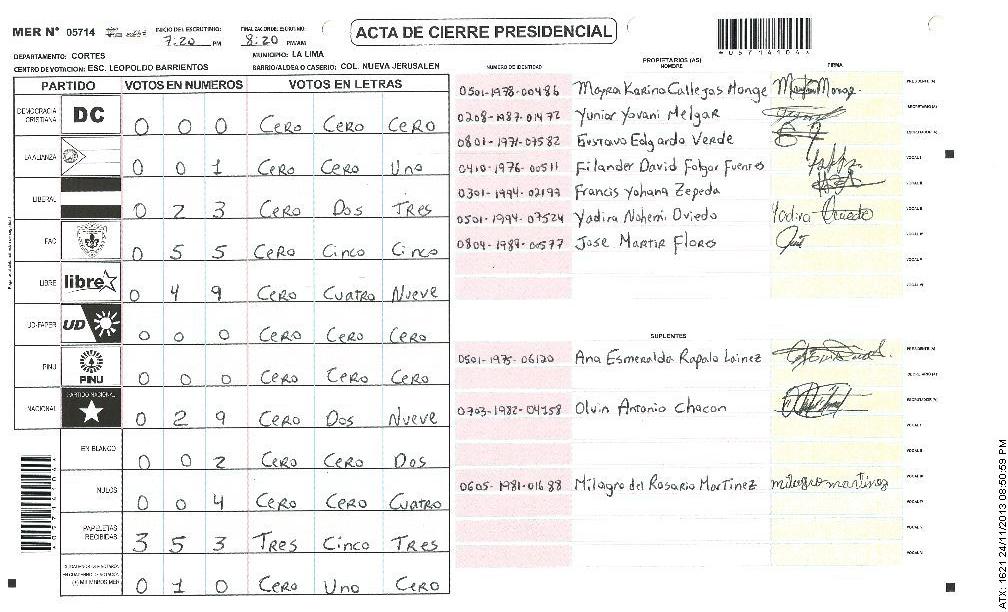 MER N° 05714
INICIO DEL ESCRUTINIO: 7:20 PM
FINALIZACION DE ESCRUTINIO: 8:20 PM/AM
ACTA DE CIERRE PRESIDENCIAL
DEPARTAMENTO: CORTES
MUNICIPIO: LA LIMA
CENTRO DE VOTACION: ESC. LEOPOLDO BARRIENTOS
BARRIO/ALDEA O CASERIO: COL. NUEVA JERUSALEN
PARTIDO VOTOS EN NUMEROS VOTOS EN LETRAS
DEMOCRACIA CRISTIANA DC 0 0 0 Cero Cero Cero
LA ALIANZA 0 0 1 Cero Cero Uno
LIBERAL 0 2 3 Cero Dos Tres
PAC 0 5 5 Cero Cinco Cinco
LIBRE libre 0 4 9 Cero Cuatro Nueve
UD-FAPER UD 0 0 0 Cero Cero Cero
PINU PINU 0 0 0 Cero Cero Cero
NACIONAL PARTIDO NACIONAL 0 2 9 Cero Dos Nueve
EN BLANCO 0 0 2 Cero Cero Dos
NULOS 0 0 4 Cero Cero Cuatro
PAPELETAS RECIBIDAS 3 5 3 Tres Cinco Tres
0 1 0 Cero Uno Cero
PROPIETARIOS (AS)
NUMERO DE IDENTIDAD NOMBRE FIRMA
0501-1978-00486 Mayra Karina Callejas Monge
0208-1987-01472 Yunior Yovani Melgar
0801-1971-07582 Gustavo Edgardo Verde
0410-1976-00511 Filander David Folgar Fuentes
0301-1994-02193 Francis Yohana Zepeda
0501-1994-07524 Yadira Nohemi Oviedo Yadira Oviedo
0804-1989-00577 Jose Martir Flores
SUPLENTES
0501-1975-06120 Ana Esmeralda Rapalo Lainez
0703-1982-04158 Olvin Antonio Chacon
0605-1981-01688 Milagro del Rosario Martinez milagro martinez
ATX: 1621 24/11/2013 08:50:59 PM